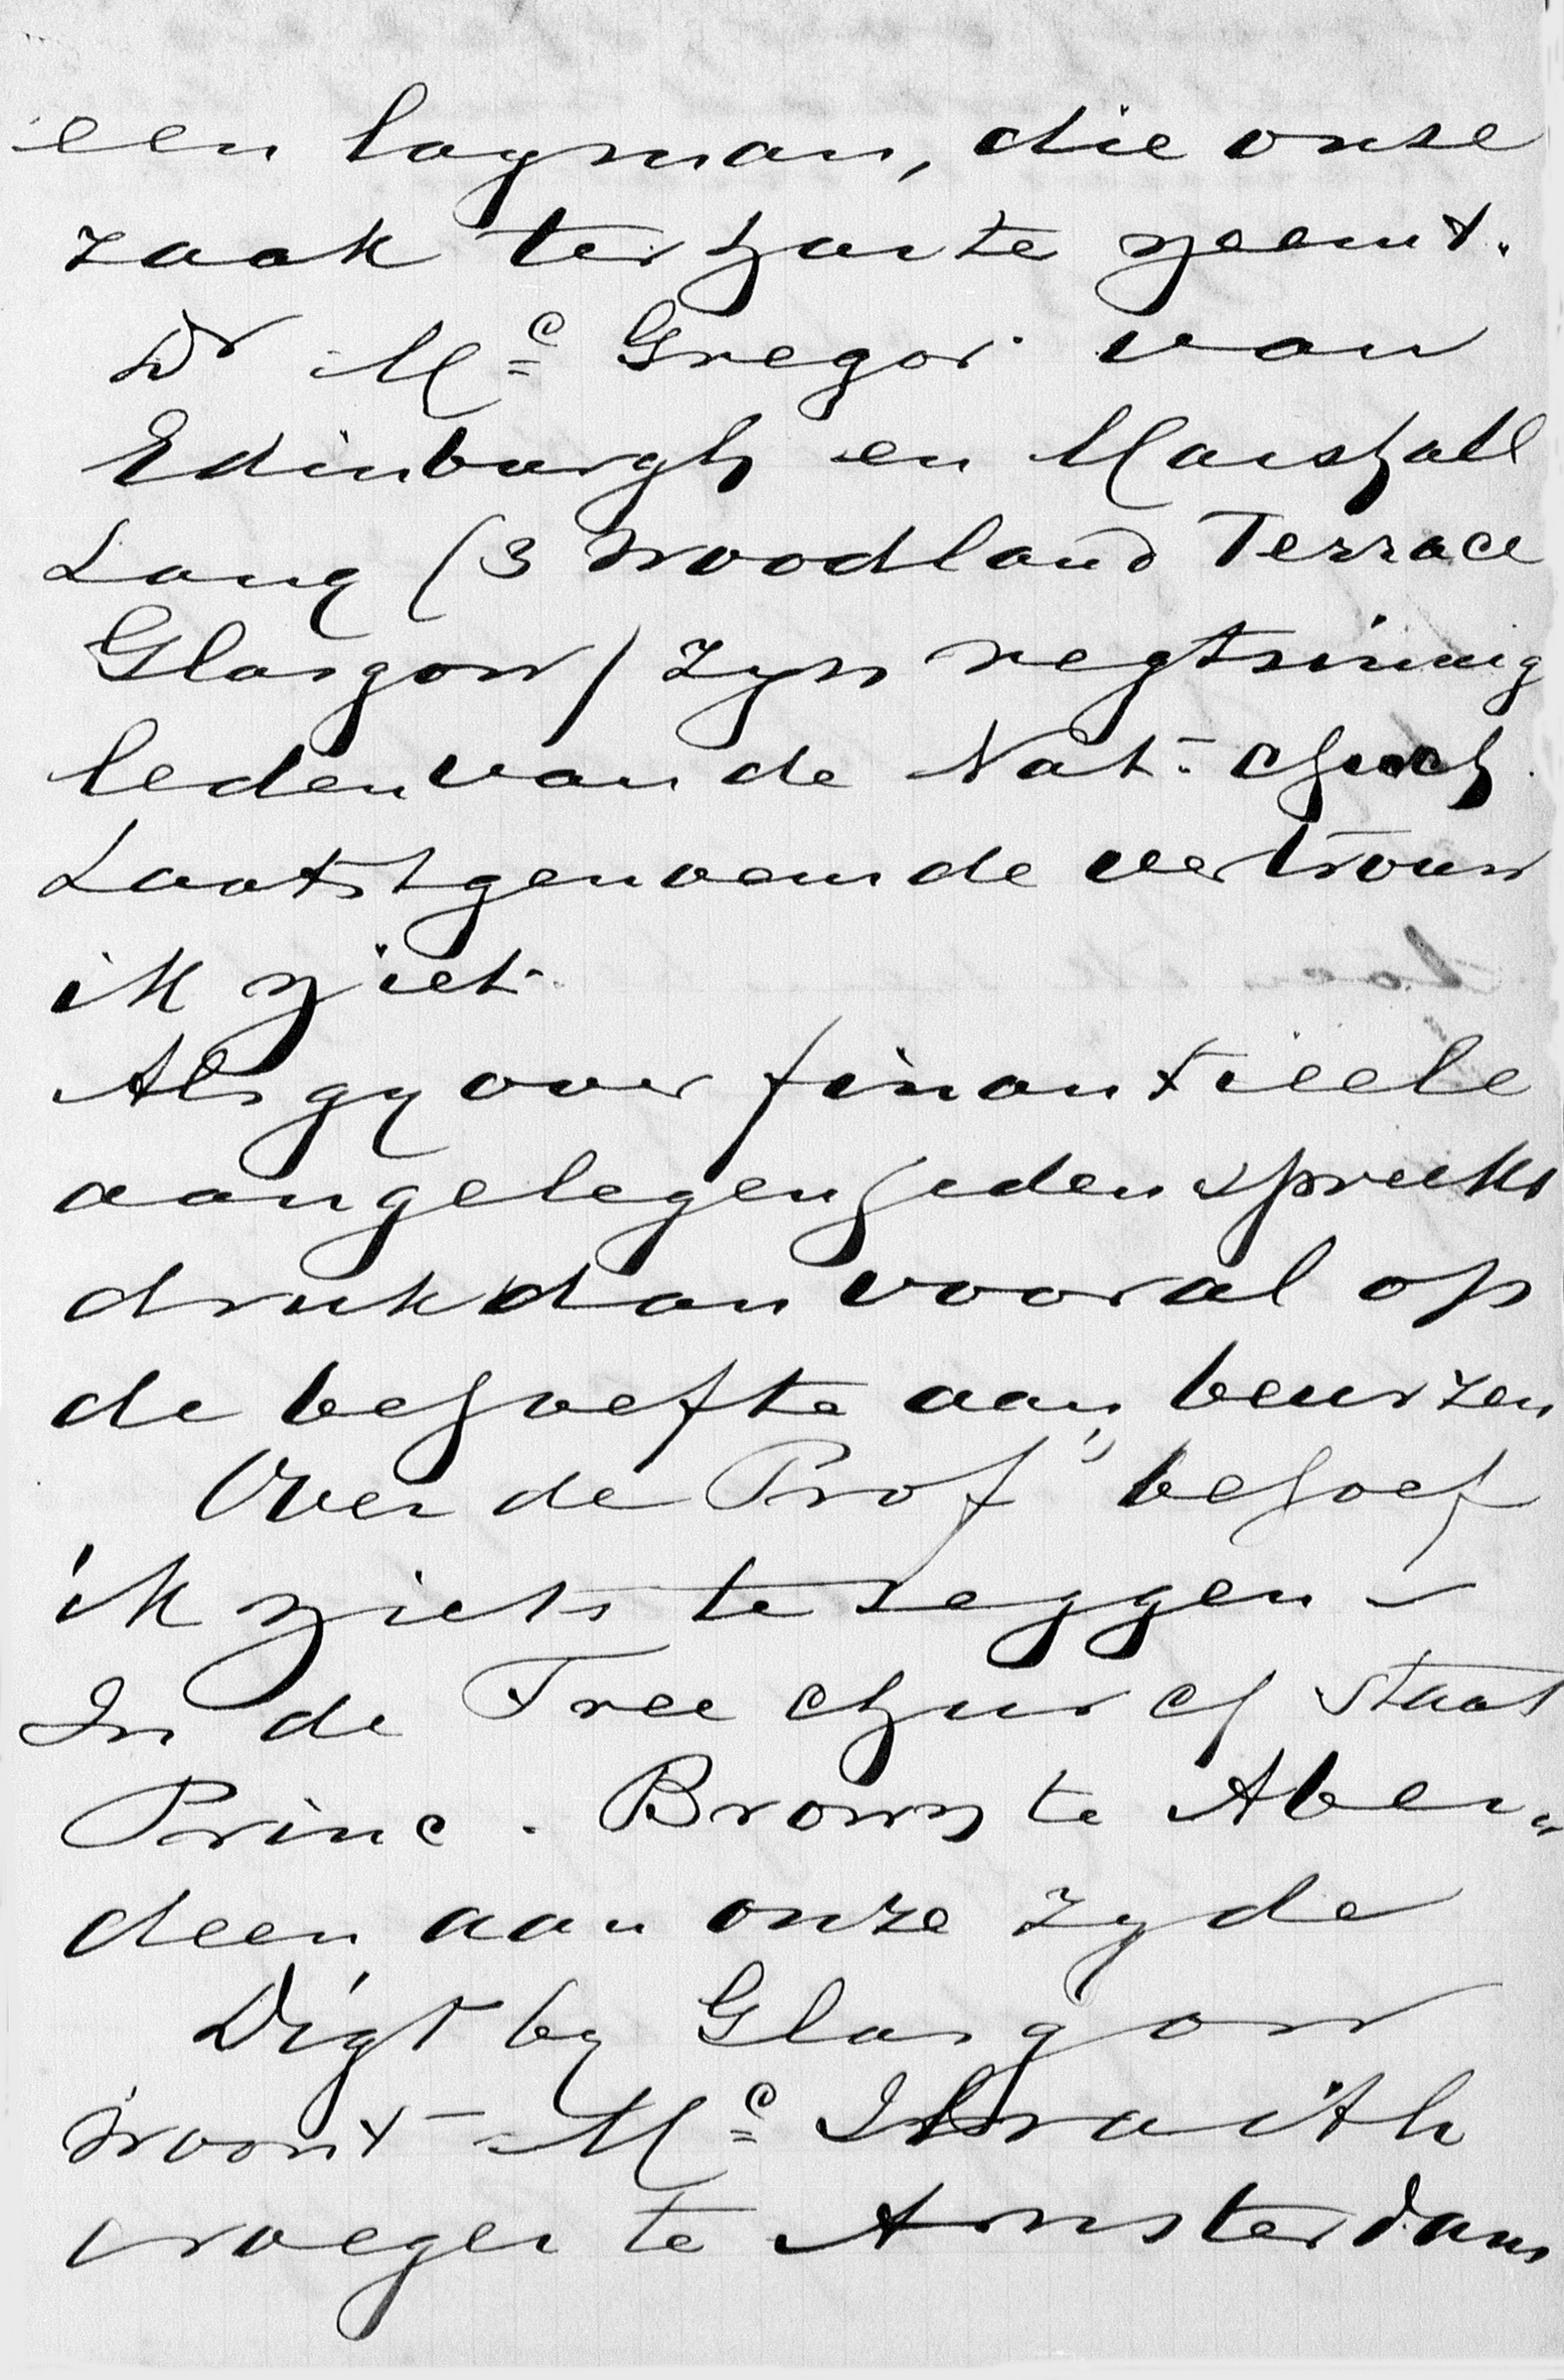 een layman, die onze
zaak ter harte neemt.
Dr Mc Gregor van
Edinburgh en Marshall
Lang (3 Woodland Terrace
Glasgow) zyn regtzinnig
leden van de Nat. church
Laatstgenoemde vertrouw
ik niet.
Als gy over finantieele
aangelegenheden spreekt
druk dan vooral op
de behoefte aan beurzen
Over de Prof behoef
ik niets te zeggen -
In de Free church staat
Princ. Brown te Aber„
deen aan onze zyde
Digt by Glasgow
woont Mc Ilwraith
vroeger te Amsterdam